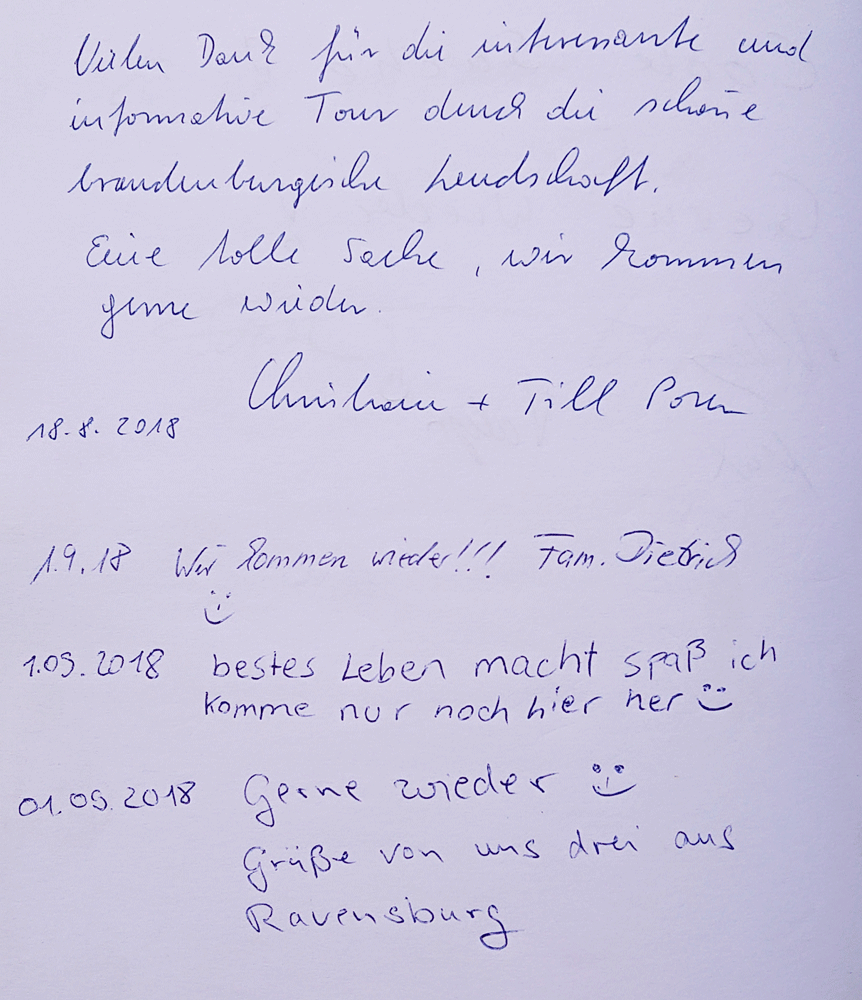 Vielen Dank für die interessante und
informative Tour durch die schöne
brandenburgische Landschaft.
Eine tolle Sache, wir kommen
gerne wieder.
+ Till
18.8.2018
1.9.18 Wir kommen wieder!!! Fam. Dietrich
1.09.2018 bestes Leben macht spaß ich
komme nur noch hier her
01.09.2018 Gerne wieder
Grüße von uns drei aus
Ravensburg